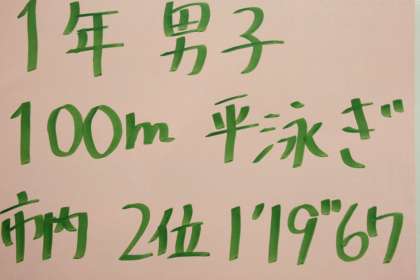 1年 男子
100m 平泳ぎ
市内 2位 1'19"67